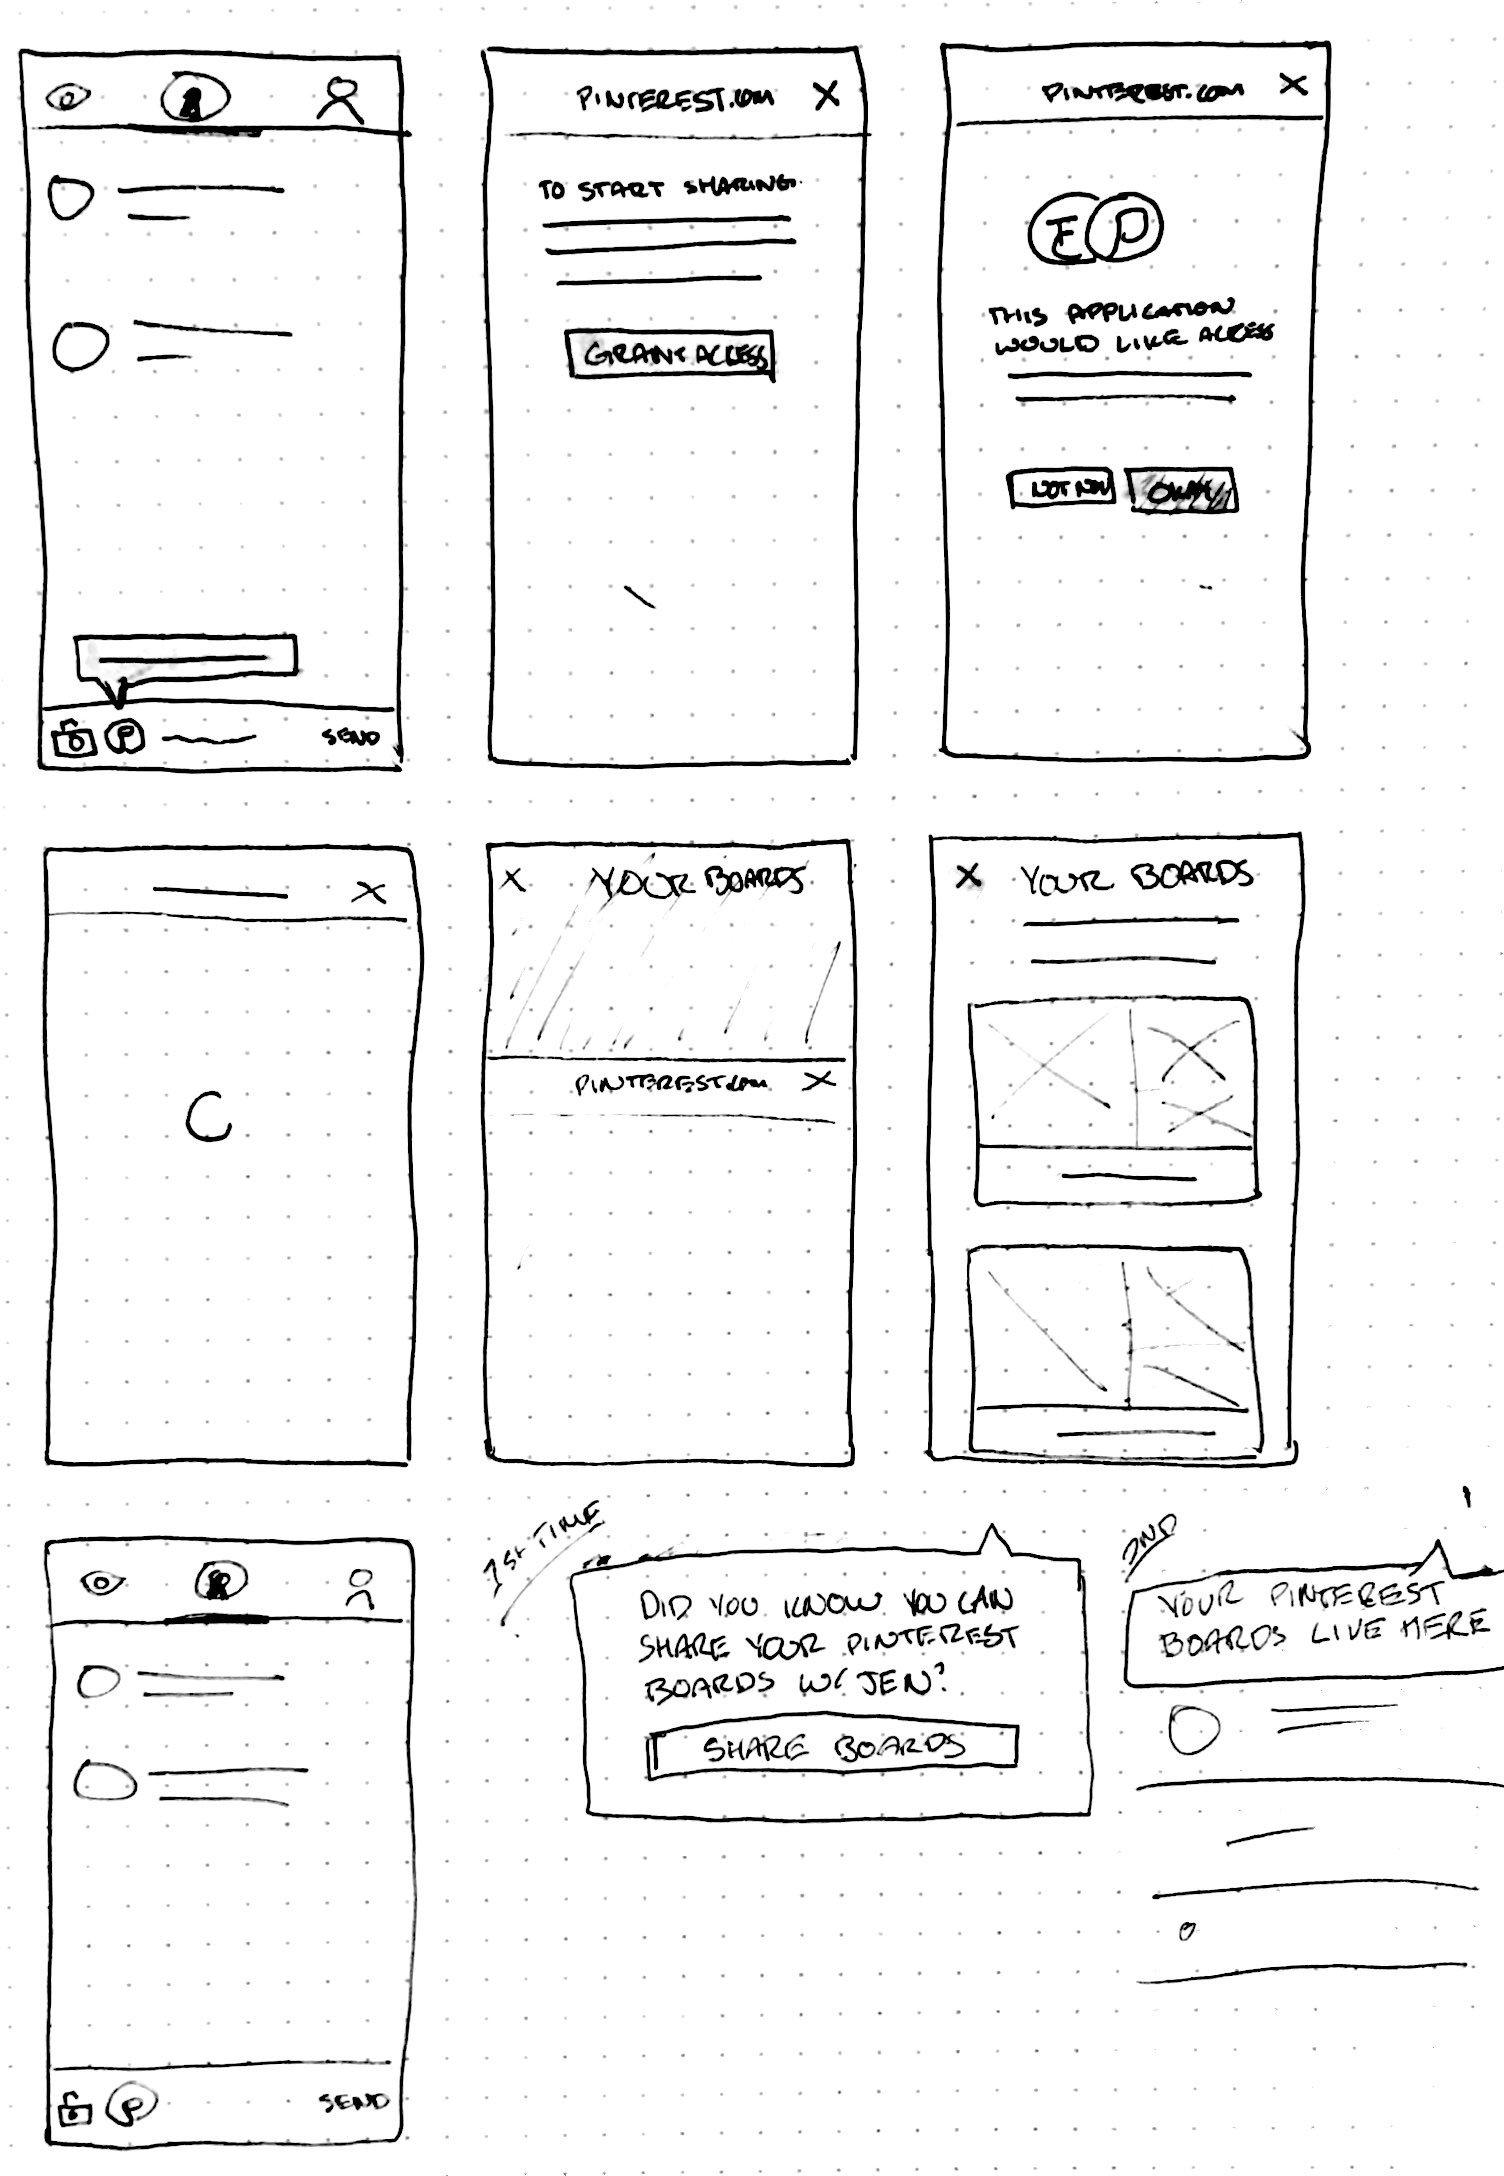 SEND
P
PINTEREST.COM X
TO START SHARING.
GRANT ACCESS
PINTEREST.COM X
E P
THIS APPLICATION
WOULD LIKE ACCESS
NOT NOW
OKAY
X
X YOUR BOARDS
PINTEREST.COM X
X YOUR BOARDS
P
SEND
1ST TIME
DID YOU KNOW YOU CAN
SHARE YOUR PINTEREST
BOARDS W/ JEN?
SHARE BOARDS
2ND
YOUR PINTEREST
BOARDS LIVE HERE